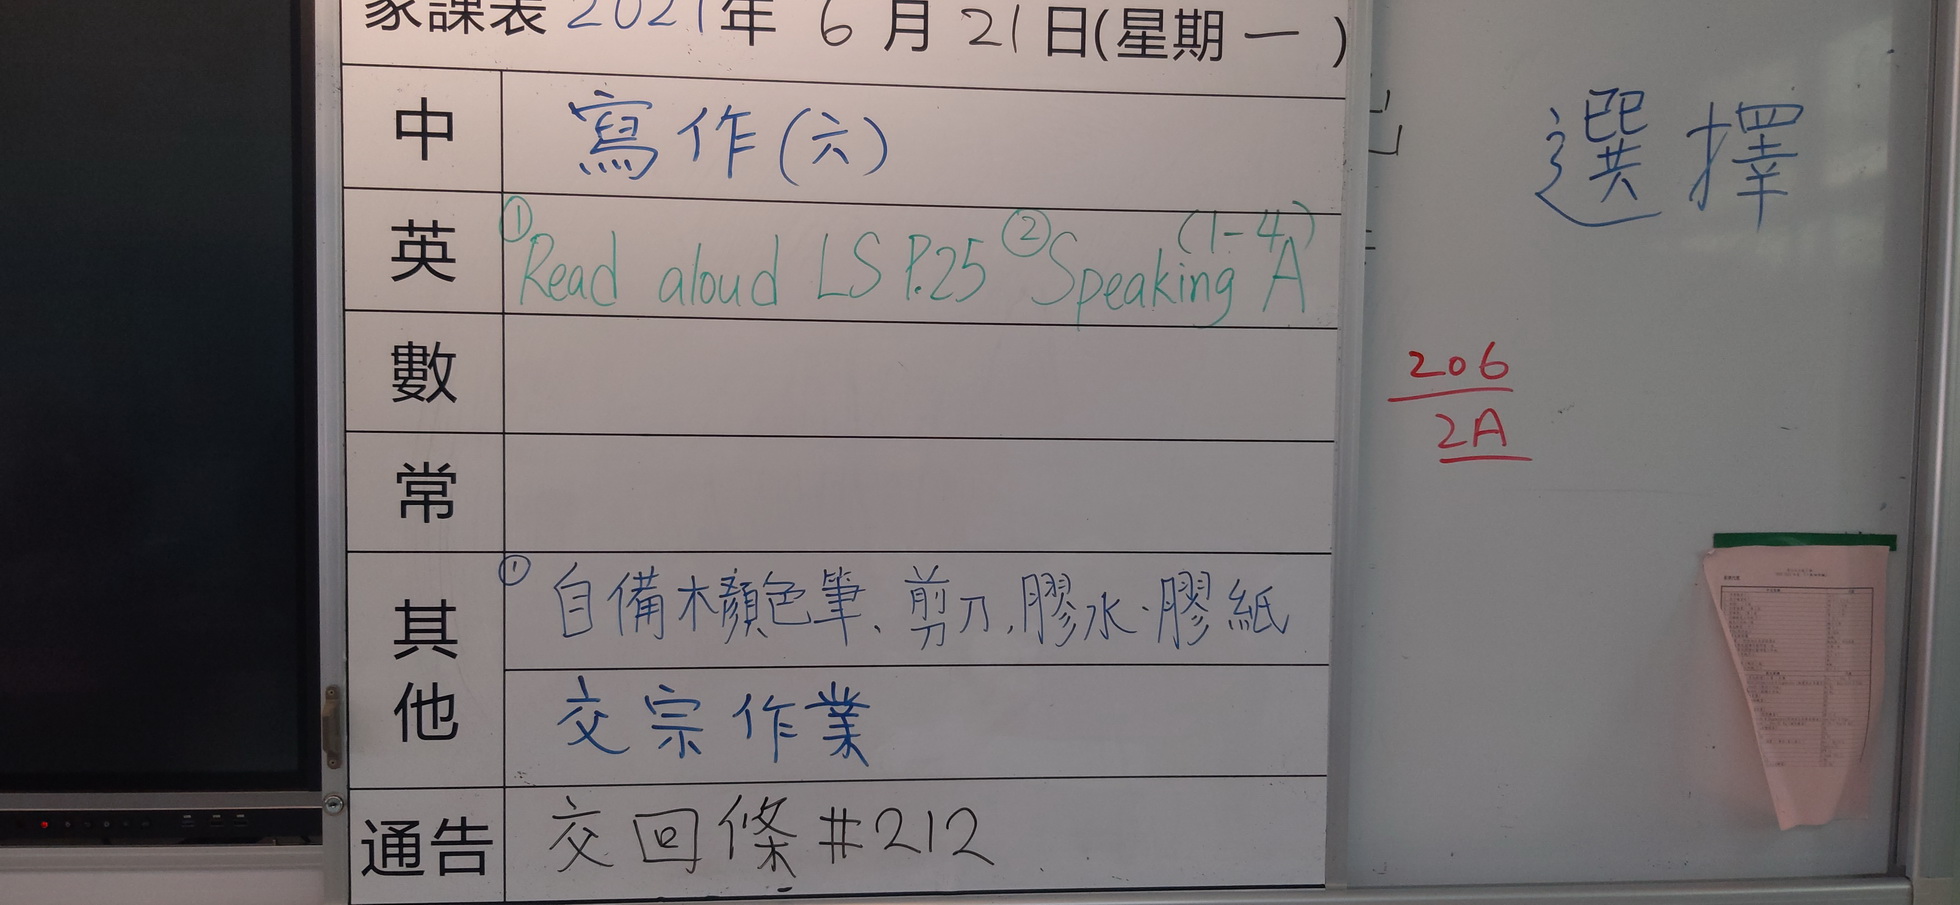 家課表 2021年 6月21日(星期一)
中 寫作(六)
英 ①Read aloud LS P.25 ②Speaking A (1-4)
數
常
其他 ① 自備木顏色筆、剪刀,膠水、膠紙
交宗作業
通告 交回條#212
選擇
206
2A